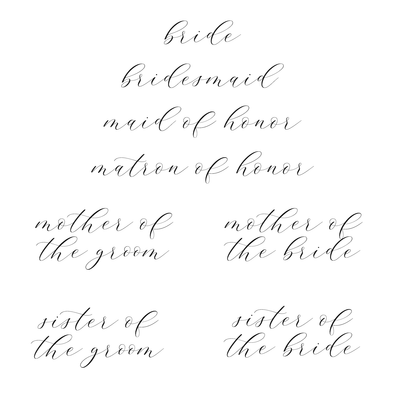 bride
bridesmaid
maid of honor
matron of honor
mother of
the groom
mother of
the bride
sister of
the groom
sister of
the bride